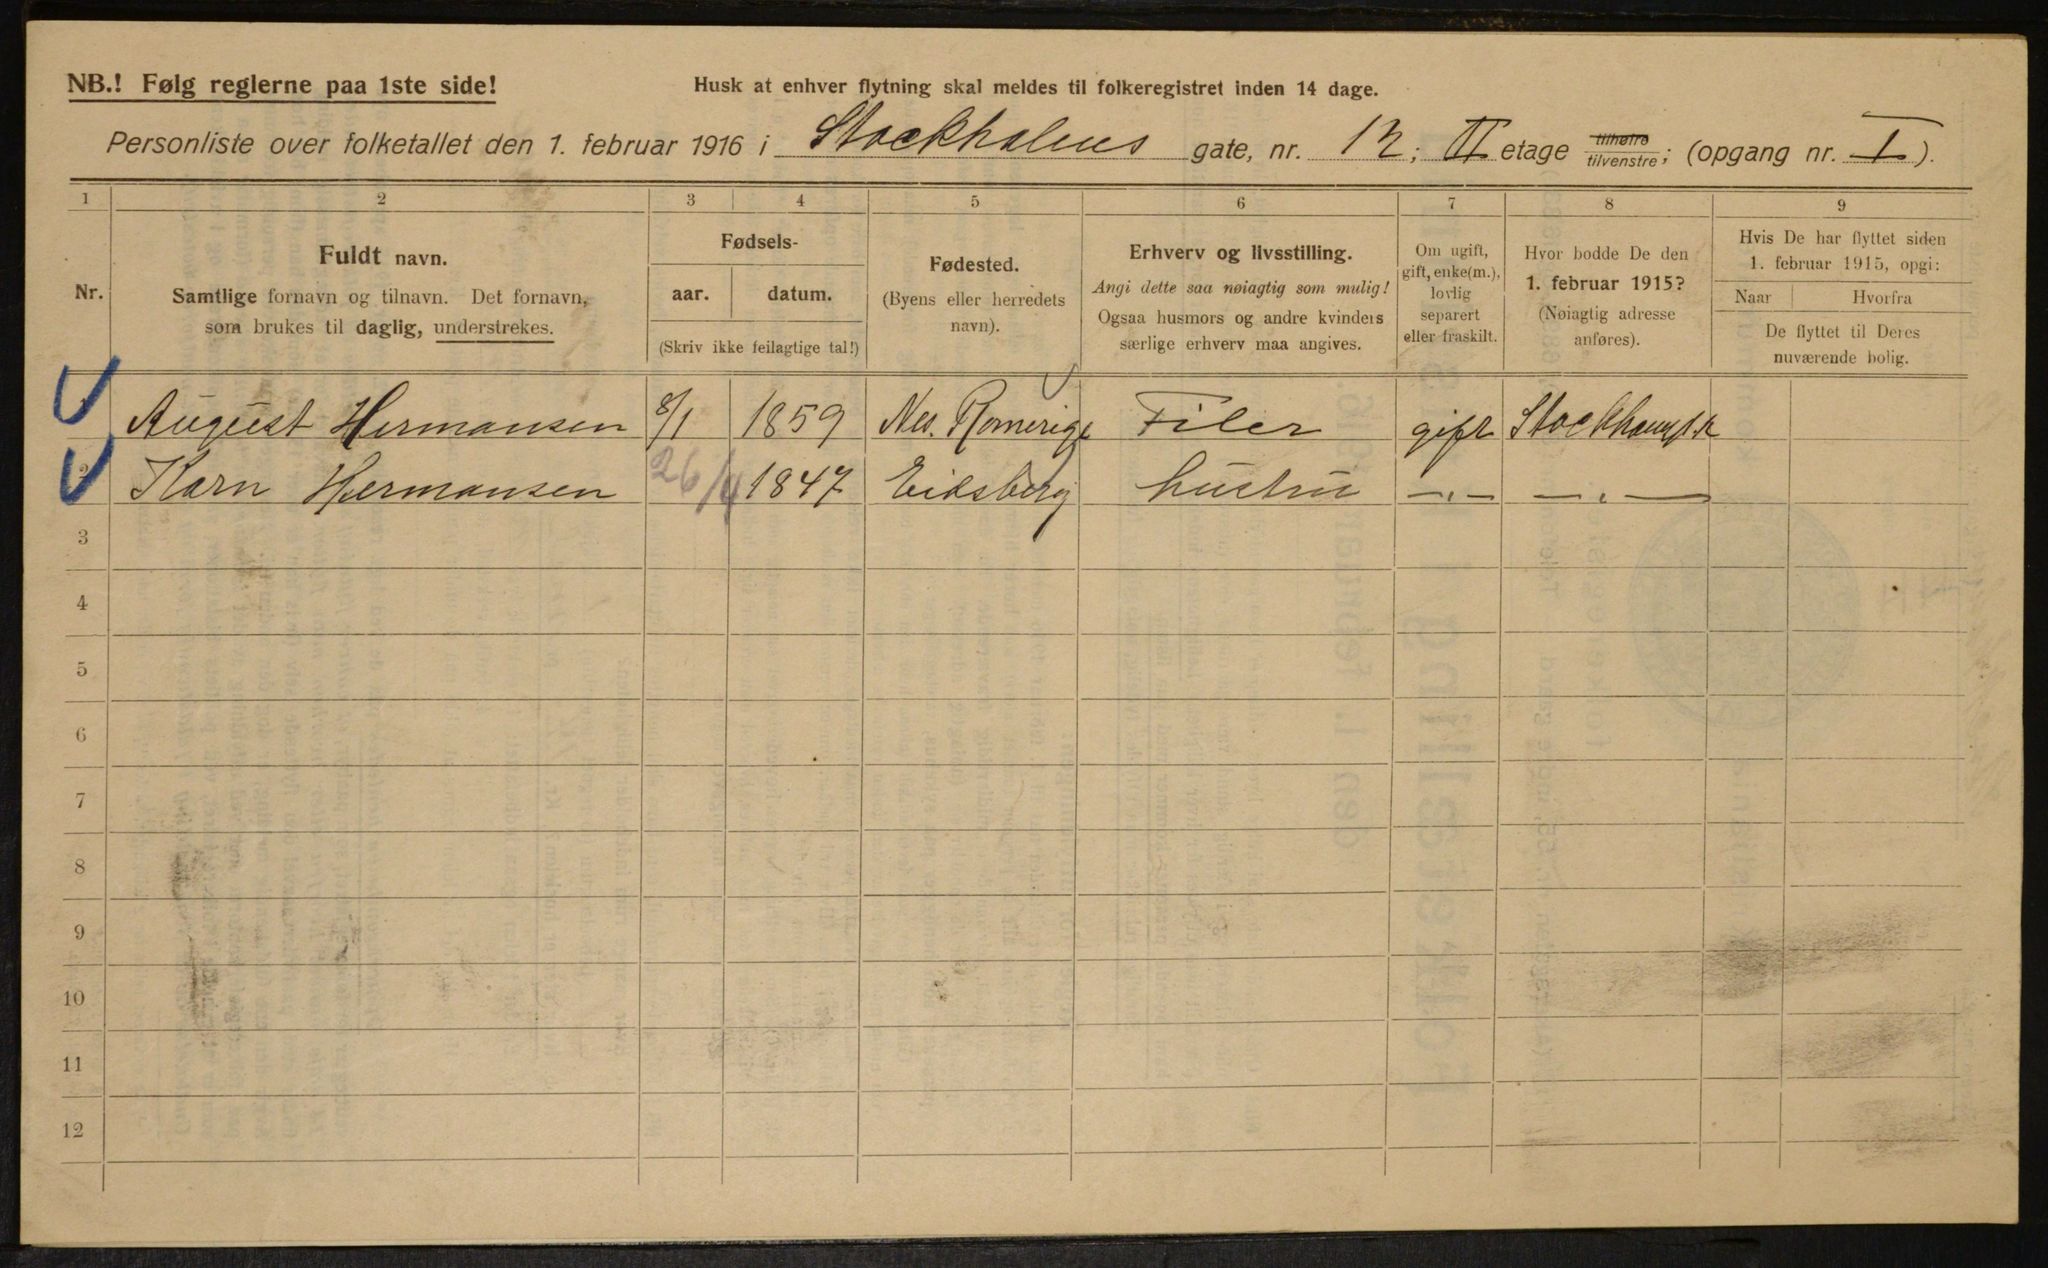 NB.! Følg reglerne paa 1ste side!
Husk at enhver flytning skal meldes til folkeregistret inden 14 dage.
Personliste over folketallet den 1. februar 1916 i Stockholms gate, nr. 12; II etage tilhøire tilvenstre; (opgang nr. I).
1 2 3 4 5 6 7 8 9
Nr.
Fuldt navn.
Samtlige fornavn og tilnavn. Det fornavn,
som brukes til daglig, understrekes.
Fødsels-
aar. datum.
(Skriv ikke feilagtige tal!)
Fødested.
(Byens eller herredets
navn).
Erhverv og livsstilling.
Angi dette saa nøiagtig som mulig!
Ogsaa husmors og andre kvinders
særlige erhverv maa angives.
Om ugift,
gift, enke(m.),
lovlig
separert
eller fraskilt.
Hvor bodde De den
1. februar 1915?
(Nøiagtig adresse
anføres).
Hvis De har flyttet siden
1. februar 1915, opgi:
Naar Hvorfra
De flyttet til Deres
nuværende bolig.
August Hermansen 8/1 1859 Nes. Romerige Filer gift
2 Karn Hermansen 26/4 1847 Eidsberg hustru —„— —„—
3
4
5
6
7
8
9
10
11
12